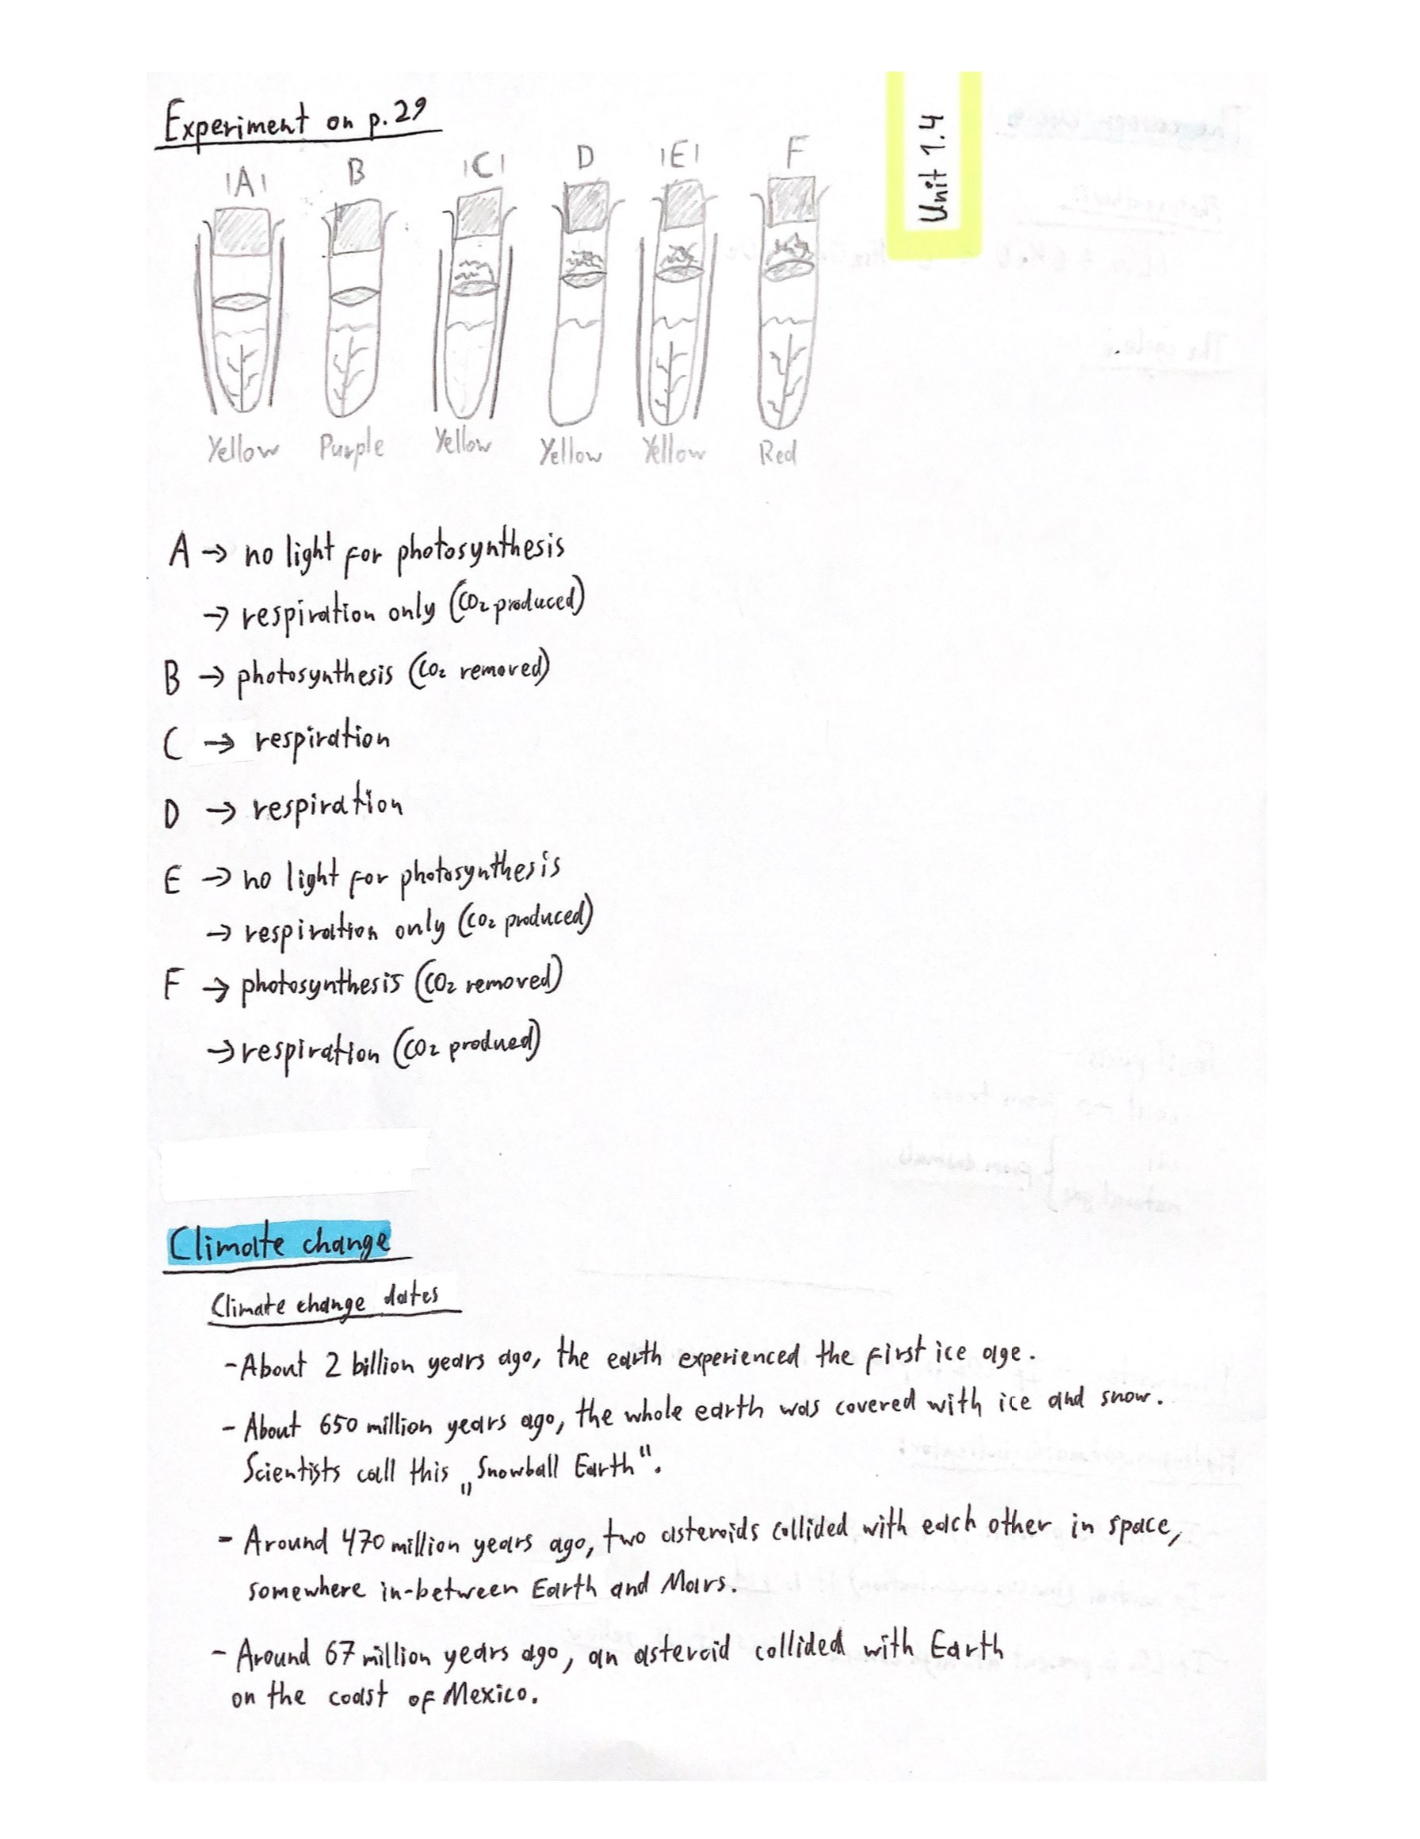 Experiment on p.29
Unit 1.4
|A| B |C| D |E| F
Yellow Purple Yellow Yellow Yellow Red
A → no light for photosynthesis
→ respiration only (CO₂ produced)
B → photosynthesis (CO₂ removed)
C → respiration
D → respiration
E → no light for photosynthesis
→ respiration only (CO₂ produced)
F → photosynthesis (CO₂ removed)
→ respiration (CO₂ produed)
Climate change
Climate change dates
- About 2 billion years ago, the earth experienced the first ice age.
- About 650 million years ago, the whole earth was covered with ice and snow.
Scientists call this „Snowball Earth".
- Around 470 million years ago, two asteroids collided with each other in space,
somewhere in-between Earth and Mars.
- Around 67 million years ago, an asteroid collided with Earth
on the coast of Mexico.